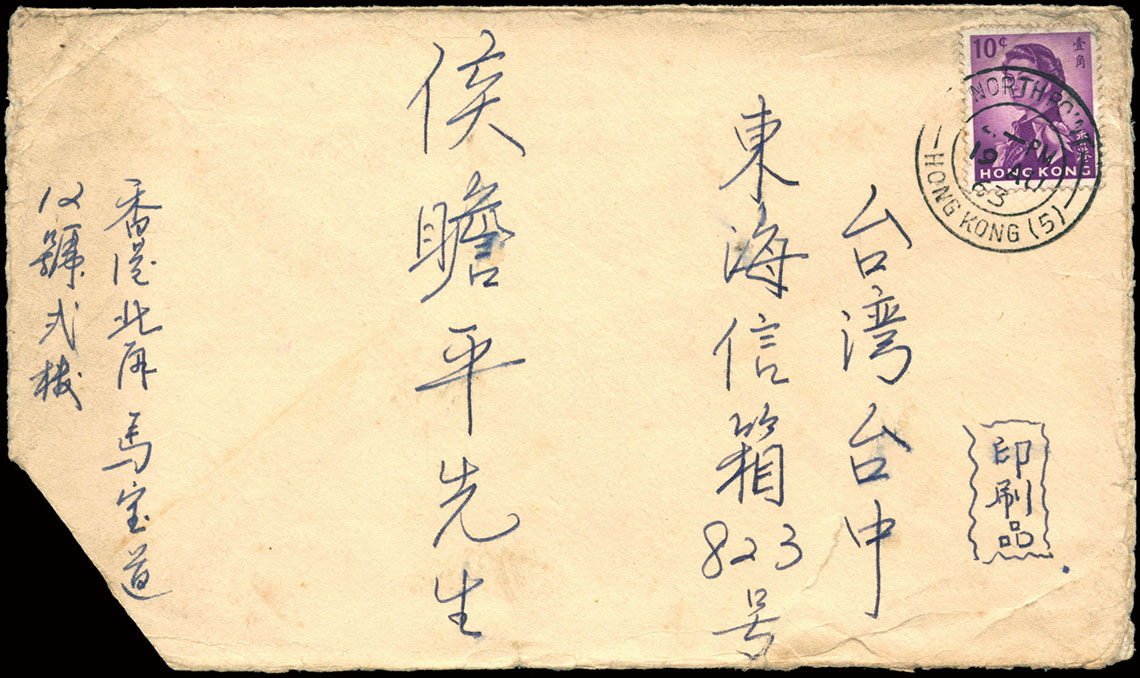 10¢
壹角
香港
HONG KONG
NORTH POINT
PM
19 AU
63
HONG KONG (5)
印刷品
台湾台中
東海信箱823号
侯瞻平先生
香港北角馬宝道
12號弍楼